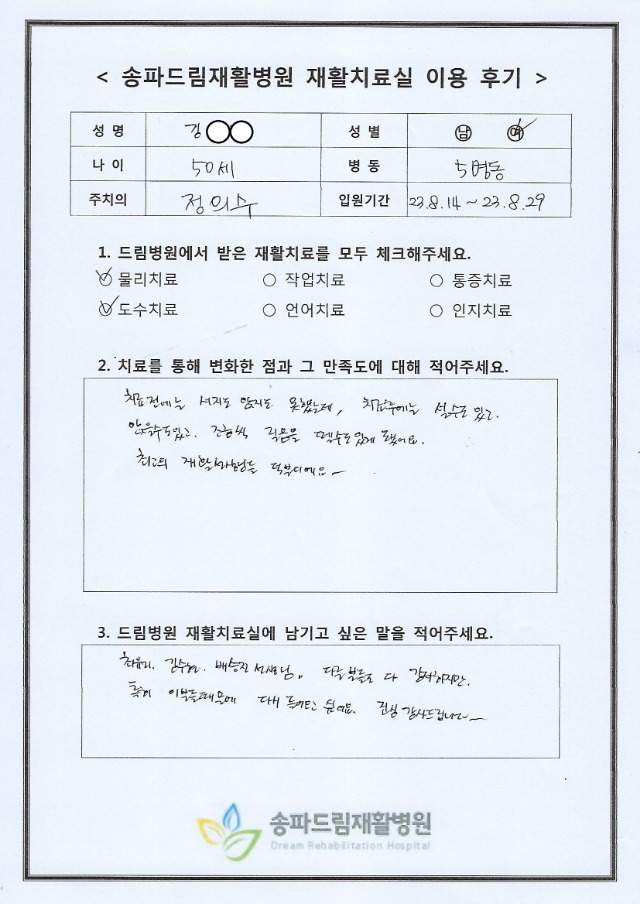 < 송파드림재활병원 재활치료실 이용 후기 >
성 명 김○○ 성 별 남 여
나 이 50세 병 동 5병동
주치의 정의수 입원기간 23.8.14 ~ 23.8.29
1. 드림병원에서 받은 재활치료를 모두 체크해주세요.
물리치료 ○ 작업치료 ○ 통증치료
도수치료 ○ 언어치료 ○ 인지치료
2. 치료를 통해 변화한 점과 그 만족도에 대해 적어주세요.
치료전에는 서지도 앉지도 못했는데, 치료후에는 설수도 있고.
앉을수도있고. 조금씩 걸음을 뗄수도있게 됐어요.
최고의 재활 덕분이에요~
3. 드림병원 재활치료실에 남기고 싶은 말을 적어주세요.
최유리. 배승진 선생님. 다른 분들도 다 감사하지만.
특히 이분들때문에 다시 진심 감사드립니다~
송파드림재활병원
Dream Rehabilitation Hospital